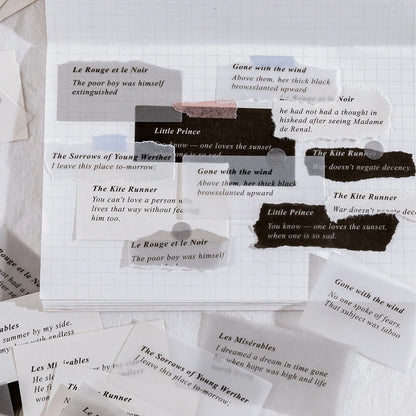 Le Rouge et le Noir
The poor boy was himself
extinguished
Gone with the wind
Above them, her thick black
browsslanted upward
Le Rouge et le Noir
he had not had a thought in
hishead after seeing Madame
de Renal.
Little Prince
know — one loves the sunset,
one is so sad.
The Sorrows of Young Werther
I leave this place to-morrow;
Gone with the wind
Above them, her thick black
browsslanted upward
The Kite Runner
War doesn't negate decency.
The Kite Runner
You can't love a person w
lives that way without fea
him too.
The Kite Runner
War doesn't negate
Little Prince
You know — one loves the sunset,
when one is so sad.
Le Rouge et le Noir
The poor boy was himself
Gone with the wind
No one spoke of fears.
That subject was taboo
Rouge et le Noir
had not had a
Les Misérables
I dreamed a dream in time gone
when hope was high and life
The Sorrows of Young Werther
I leave this place to-morrow;
rables
summer by my side.
with endless
Les Misérables
He
He
The Kite Runner
Le Rouge et le Noir